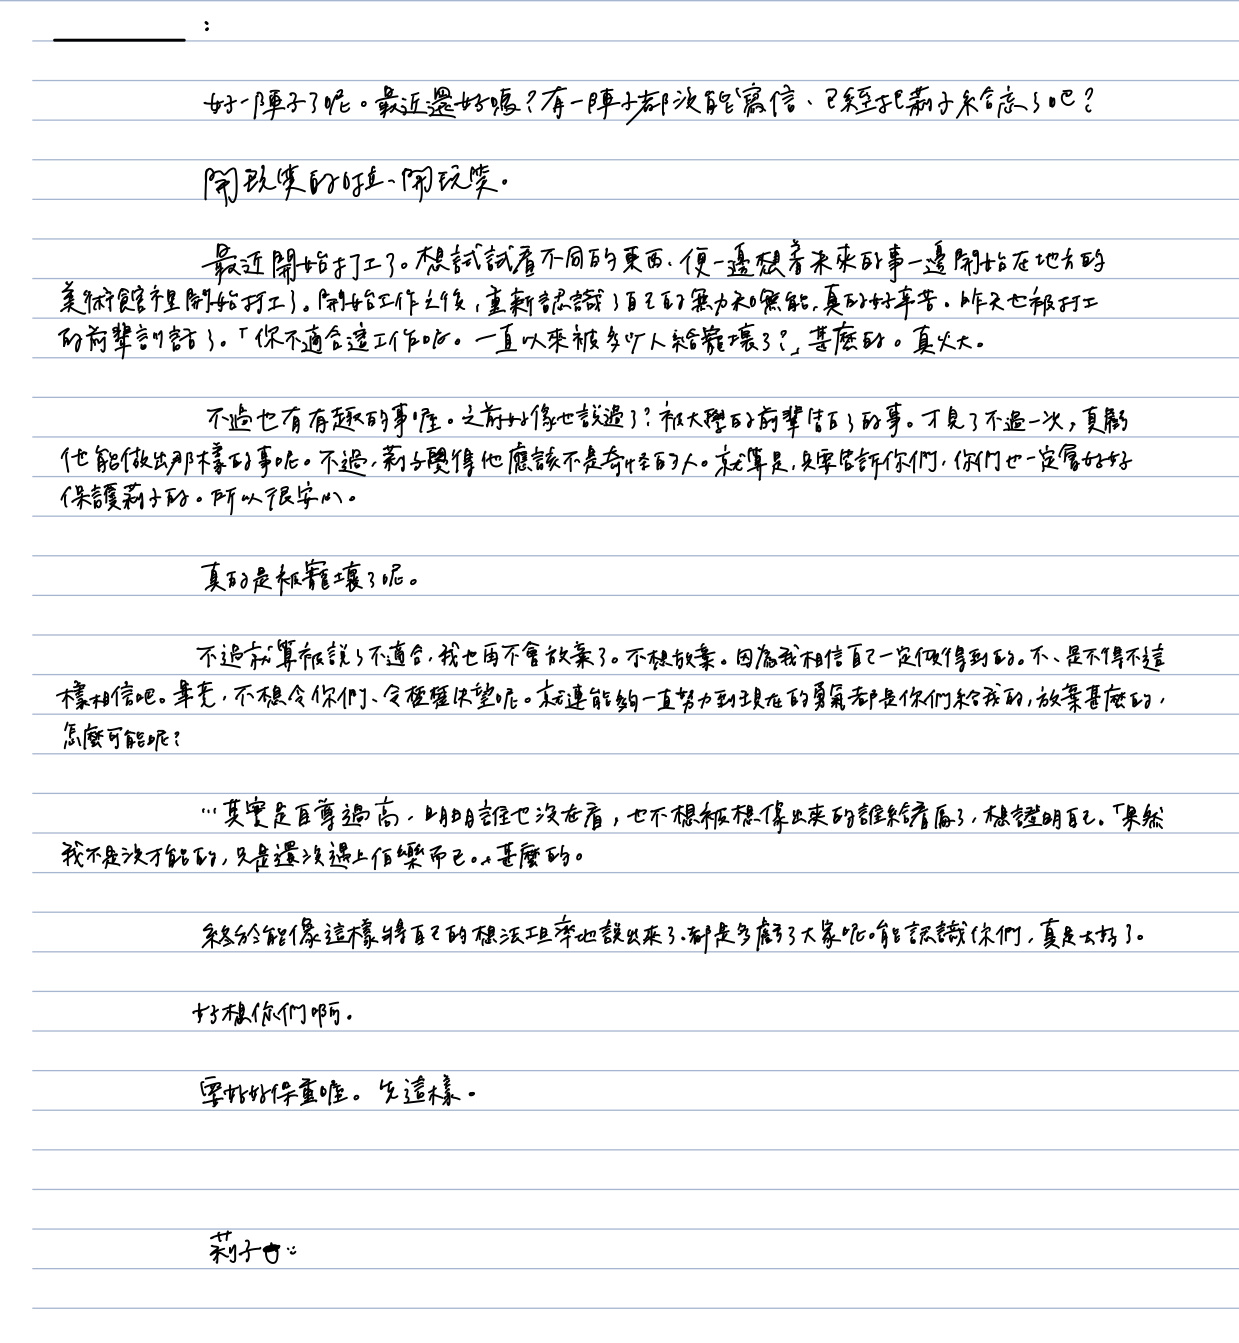 ：
好一陣子了呢。最近還好嗎？有一陣子都沒能寫信、已經把莉子給忘了吧？
開玩笑的啦、開玩笑。
最近開始打工了。想試試看不同的東西、便一邊想著未來的事一邊開始在地方的
美術館裡開始打工了。開始工作之後，重新認識了自己的無力和無能，真的好辛苦。昨天也被打工
的前輩訓話了。「你不適合這工作吶。一直以來被多少人給寵壞了？」甚麼的。真火大。
不過也有有趣的事喔。之前好像也說過了？被大學的前輩告白了的事。才見了不過一次，真虧
他能做出那樣的事呢。不過，莉子覺得他應該不是奇怪的人。就算是，只要告訴你們，你們也一定會好好
保護莉子的。所以很安心。
真的是被寵壞了呢。
不過就算被說了不適合，我也再不會放棄了。不想放棄。因為我相信自己一定做得到的。不、是不得不這
樣相信吧。畢竟，不想令你們、令失望呢。就連能夠一直努力到現在的勇氣都是你們給我的，放棄甚麼的，
怎麼可能呢？
…其實是自尊過高，明明誰也沒在看，也不想被想像出來的誰給看扁了，想證明自己。「果然
我不是沒才能的，只是還沒遇上伯樂而已。」甚麼的。
終於能像這樣將自己的想法坦率地說出來了、都是多虧了大家呢。能認識你們，真是太好了。
好想你們啊。
要好好保重喔。先這樣。
莉子